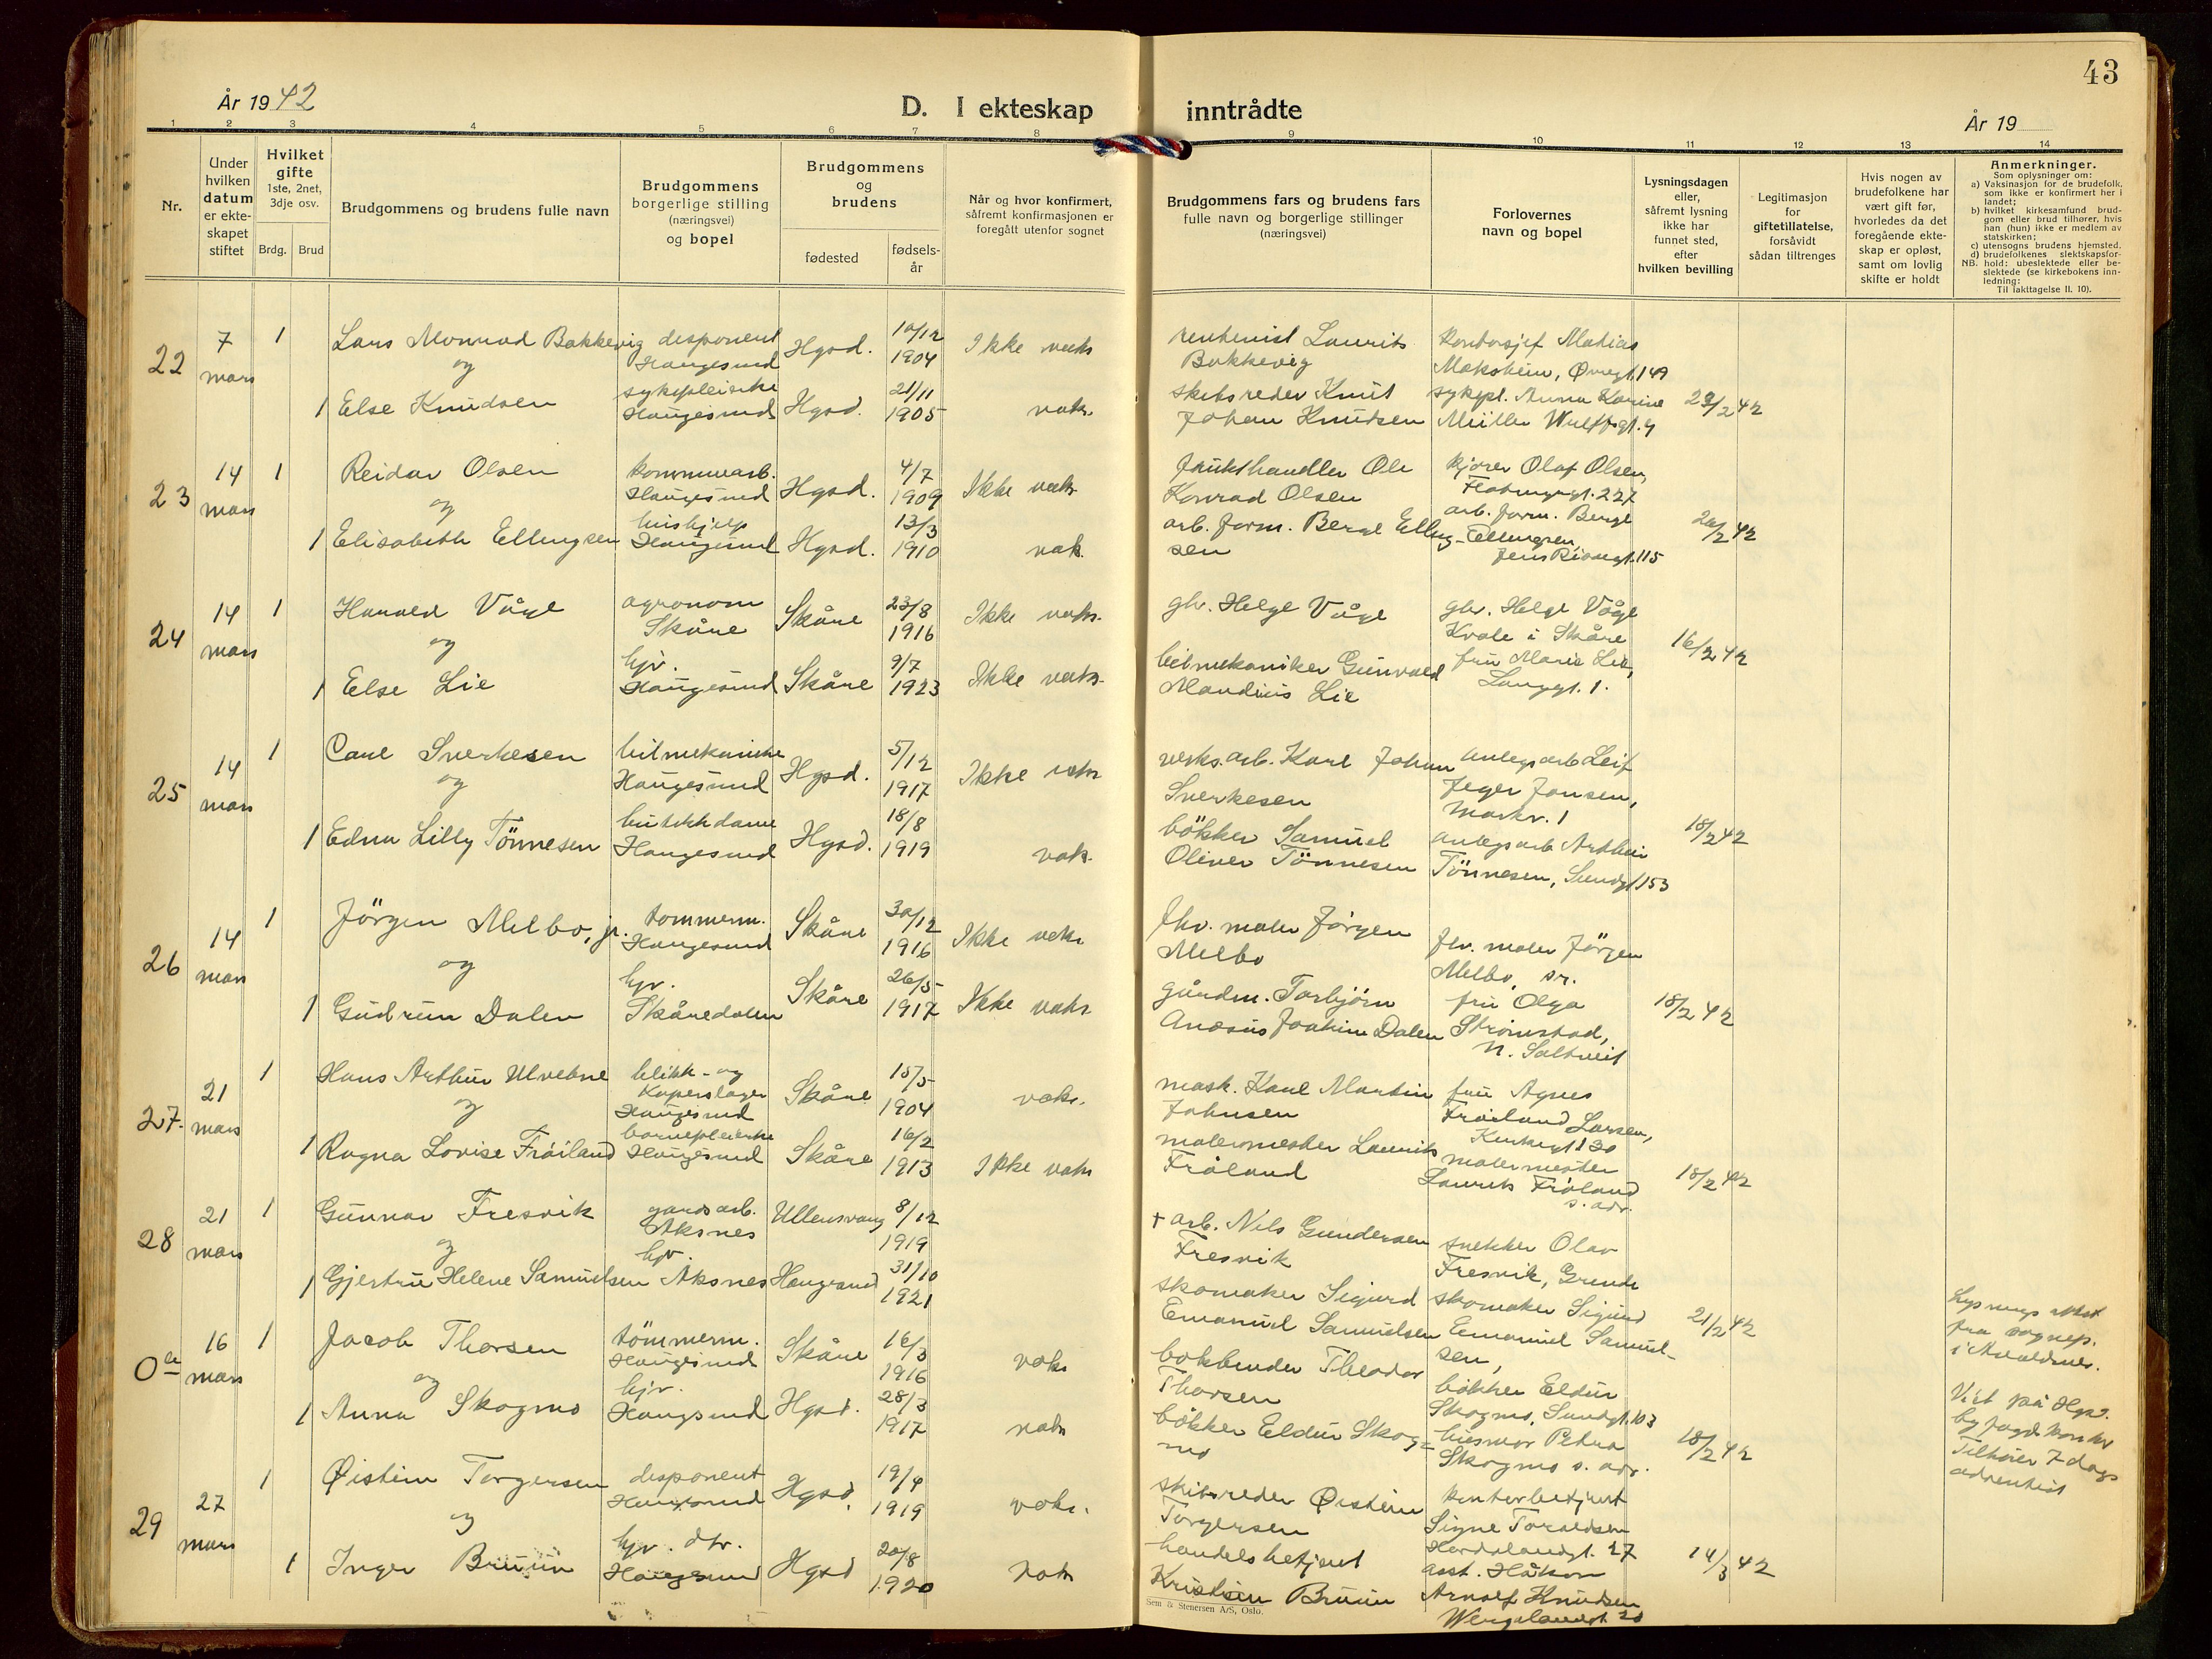 43
År 1942
D. I ekteskap inntrådte
År 19
1 2 3 4 5 6 7 8 9 10 11 12 13 14
Nr.
Under hvilken datum er ekteskapet stiftet
Hvilket gifte 1ste, 2net, 3dje osv.
Brdg. Brud
Brudgommens og brudens fulle navn
Brudgommens borgerlige stilling (næringsvei) og bopel
Brudgommens og brudens
fødested
fødsels-år
Når og hvor konfirmert, såfremt konfirmasjonen er foregått utenfor sognet
Brudgommens fars og brudens fars fulle navn og borgerlige stillinger (næringsvei)
Forlovernes navn og bopel
Lysningsdagen eller, såfremt lysning ikke har funnet sted, efter hvilken bevilling
Legitimasjon for giftetillatelse, forsåvidt sådan tiltrenges
Hvis nogen av brudefolkene har vært gift før, hvorledes da det foregående ekteskap er opløst, samt om lovlig skifte er holdt
Anmerkninger.
Som oplysninger om:
a) Vaksinasjon for de brudefolk, som ikke er konfirmert her i landet;
b) hvilket kirkesamfund brudgom eller brud tilhører, hvis han (hun) ikke er medlem av statskirken;
c) utensogns brudens hjemsted.
d) brudefolkenes slektskapsforhold: ubeslektede eller beslektede (se kirkebokens innledning:
NB.
Til iakttagelse II. 10).
22 7 mars 1 Lars Monrad Bakkevig disponent Haugesund Hgsd. 10/12 1904 Ikke vaks rentenist Laurits Bakkevig kontorsjef Matias Moksheim, Øvregt. 149
og
1 Else Knudsen sykepleierske Haugesund Hgsd. 21/11 1905 vaks. skibsreder Knut Johan Knudsen sykepl. Anna Karine Müller Wulffsgt. 4 /2 42
23 14 mars 1 Reidar Olsen kommunearb. Haugesund Hgsd. 4/7 1909 Ikke vaks frukthandler Ole Konrad Olsen kjører Olaf Olsen, 227
og
1 Elisabeth Ellingsen hushjelp Haugesund Hgsd. 13/3 1910 vak. arb. form. Berge Ellingsen arb. form. Berge Ellingsen, 115 /2 42
24 14 mars 1 Harald Våge agronom Skåre Skåre 23/8 1916 Ikke vaks. gbr. Helge Våge gbr. Helge Våge Kvale i Skåre
og
1 Else Lie hjv. Haugesund Skåre 9/7 1923 Ikke vaks. bilmekaniker Gunvald Mandius Lie fru Marie Lie, Langgt. 1. 16/2 42
25 14 mars 1 Carl Sverkesen bilmekaniker Haugesund Hgsd. 5/12 1917 Ikke vaks verks. arb. Karl Johan Sverkesen anlegsarb Leif Jeger Jansen, Markv. 1
og
1 Edna Lilly Tönnesen butikkdame Haugesund Hgsd. 18/8 1919 vak. bökker Samuel Oliver Tönnesen anlegsarb Arthur Tönnesen, Sundgt 153 18/2 42
26 14 mars 1 Jörgen Melbo, jr. tommerm. Haugesund Skåre 30/12 1916 Ikke vaks fhv. maler Jörgen Melbo fhv. maler Jörgen Melbo, sr.
og
1 Gudrun Dalen hjv. Skåredalen Skåre 26/5 1917 Ikke vaks gårdm. Torbjörn Joakim Dalen fru Olga Strömstad, N. Saltveit 18/2 42
27 21 mars 1 Hans Arthur Ulvebne blikk- og Koperslager Haugesund Skåre 15/5 1904 vaks. mask. Karl Martin Johnsen fru Agnes Fröiland Larsen, Kirkegt 130
og
1 Ragna Lovise Fröiland barnepleierske Haugesund Skåre 16/2 1913 Ikke vaks malermester Laurits Fröland malermester Laurits Fröland s. adr. 18/2 42
28 21 mars 1 Gunnar Fresvik gardsarb. Aksnes Ullensvang 8/12 1919 + arb. Nils Gundersen Fresvik snekker Olav Fresvik, Grinde
og
1 Gjertru Helene Samuelsen hjv. Aksnes Haugesund 31/10 1921 skomaker Sigurd Emanuel Samuelsen skomaker Sigurd Emanuel Samuelsen, 21/2 42 Lysnings attest fra sognep. i Avaldsnes.
0 16 mars 1 Jacob Thorsen tömmerm. Haugesund Skåre 16/3 1916 vaks bokbinder Theodor Thorsen bökker Eldur Skogmo, Sundgt. 103
og
1 Anna Skogmo hjv. Haugesund Hgsd. 28/3 1917 vaks bökker Eldur Skogmo husmor Petra Skogmo s. adr. 18/2 42 Viet på Hgs. byfogdkontor Tilhörer 7 dags adventist
29 27 mars 1 Øistein Torgersen disponent Haugesund Hgsd. 19/4 1919 vaks. skibsreder Øistein Torgersen kontorbetjent Signe Toraldsen Hordalandgt. 27
og
1 Inger Bruun hjv. dtr. Haugesund Hgsd 20/8 1920 vaks handelsbetjent Kristian Bruun asst. Håkon Arnolf Knudsen Wergelandgt 20 14/3 42
Sem & Stenersen A/S, Oslo.